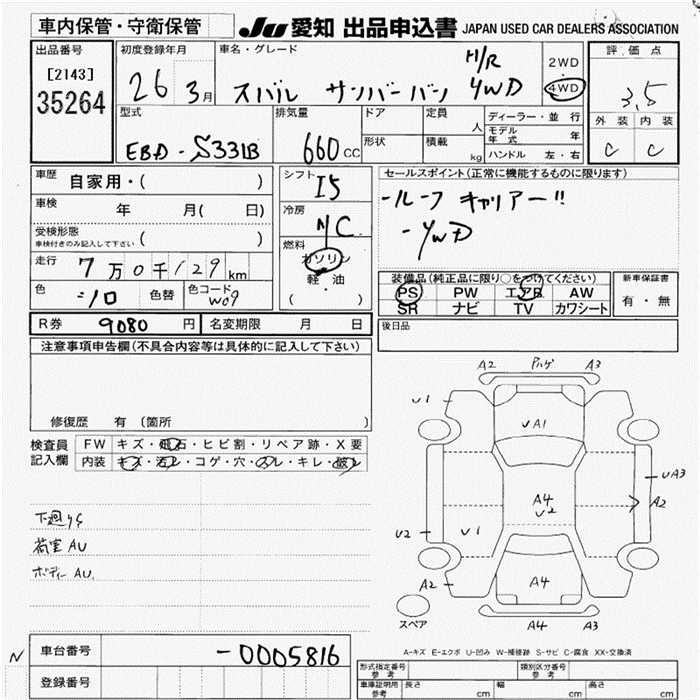 車内保管・守衛保管
JU 愛知 出品申込書 JAPAN USED CAR DEALERS ASSOCIATION
出品番号 初度登録年月 車名・グレード 評価点
[2143]
35264
26 3月
スバル サンバーバン
H/R
4WD
2WD
4WD
3.5
外装 内装
C C
型式 排気量 ドア 定員 人
ディーラー・並行
モデル年式 年
ハンドル 左・右
EBD-S331B
660 cc
形状 積載 kg
車歴 自家用・( )
シフト I5
セールスポイント(正常に機能するものに限ります)
車検 年 月( 日)
冷房 A/C
-ルーフ キャリアー!!
-4WD
受検形態
車検付きのみ記入して下さい ( )
燃料
ガソリン
軽油
( )
走行 7万0千129 km
色 シロ 色替 色コード W09
装備品(純正品に限り○をつけてください) 新車保証書
PS PW エアB AW 有・無
SR ナビ TV カワシート
R券 9080 円 名変期限 月 日
後日品
注意事項申告欄(不具合内容等は具体的に記入して下さい)
修復歴 有 (箇所 )
検査員記入欄
FW キズ・飛石・ヒビ割・リペア跡・X要
内装 キズ・汚レ・コゲ・穴・スレ・キレ・破レ
下廻りS
荷室 AU
ボディー AU.
A2 ハゲ A3
U1
UA1
UA3
A2
A4
U2
U2
U1
A2
A4
スペア
A4 A3
A-キズ E-エクボ U-凹み W-補修跡 S-サビ C-腐食 XX-交換済
N 車台番号 -0005816
登録番号
形式指定番号 参考 類別区分番号 参考
車庫証明用 参考 長さ cm 幅 cm 高さ cm